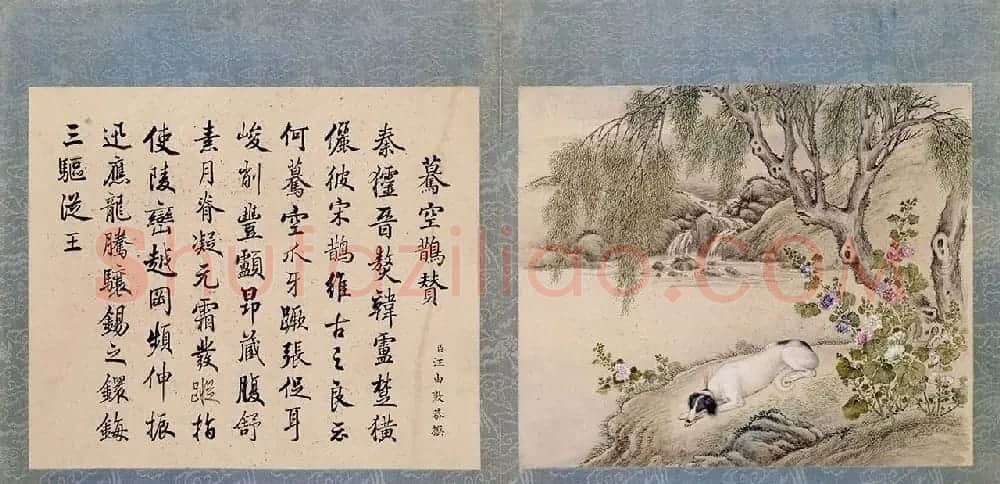 驀空鵲贊
臣汪由敦恭撰
秦晉獒韓盧楚獚
儷彼宋鵲維古之良云
何驀空氷牙蹶張促耳
峻削豐顱昂藏腹舒
素月脊凝元霜發蹤指
使陵巒越岡頻伸振
迅應龍騰驤錫之鐶鋂
三驅從王
Shufaziliao.COM